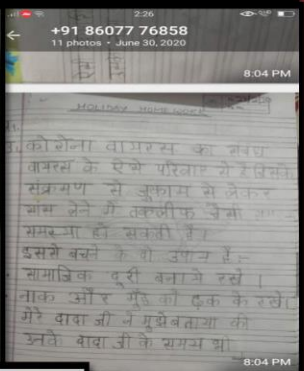 2:26
+91 86077 76858
11 photos • June 30, 2020
8:04 PM
HOLIDAY HOMEWORK
कोरोना वायरस का संबंध
वायरस के ऐसे परिवार से है जिसके
संक्रमण से जुकाम से लेकर
सांस लेने में तकलीफ जैसी
समस्या हो सकती है।
इससे बचने के दो उपाय है:-
सामाजिक दूरी बनाये रखे।
नाक और मुँह को ढ़क के रखे।
मेरे दादा जी ने मुझे बताया की
उनके दादा जी के समय भी
8:04 PM